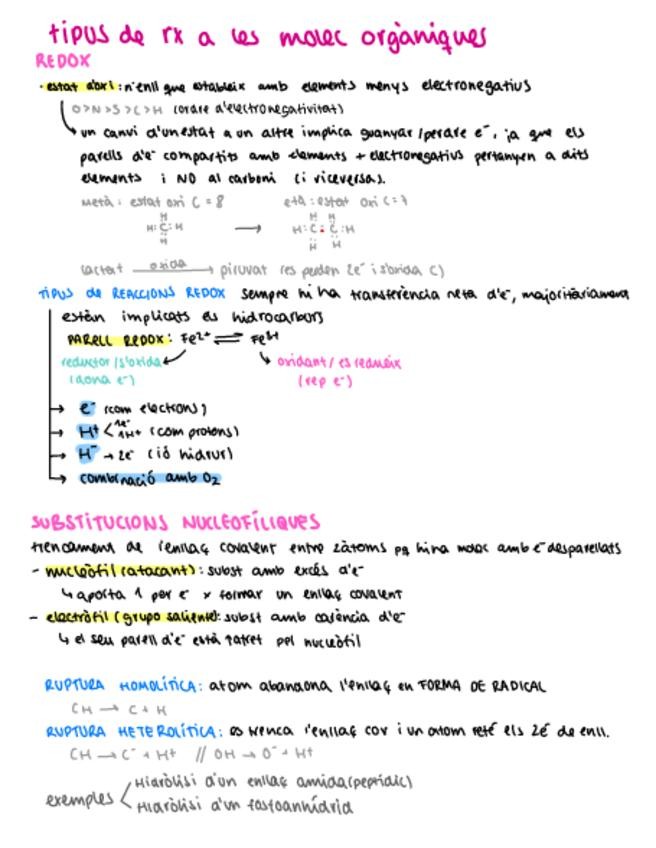 tipus de rx a les molec orgàniques
REDOX
· estat d'oxi: n'enll que estableix amb elements menys electronegatius
O>N>S>C>H (ordre d'electronegativitat)
un canvi d'un estat a un altre implica guanyar/perdre e⁻, ja que els
parells d'e⁻ compartits amb elements + electronegatius pertanyen a dits
elements i NO al carboni (i viceversa).
Metà: estat oxi C = 8 età: estat oxi C = 7
H H H
H:C:H → H:C:C:H
H H H
lactat oxida → piruvat (es perden 2e⁻ i s'oxida C)
TIPUS de REACCIONS REDOX sempre hi ha transferència neta d'e⁻, majoritàriament
estàn implicats els hidrocarburs
PARELL REDOX: Fe²⁺ ⇌ Fe³⁺
reductor/s'oxida oxidant/es redueix
(dona e⁻) (rep e⁻)
→ e⁻ (com electrons)
→ H• < 1e⁻ 1H+ (com protons)
→ H⁻ → 2e⁻ (ió hidrur)
→ combinació amb O₂
SUBSTITUCIONS NUCLEOFÍLIQUES
trencament de l'enllaç covalent entre 2 àtoms pq hi ha molec amb e⁻ desparellats
- nucleòfil (atacant): subst amb excés d'e⁻
↳ aporta 1 par e⁻ x formar un enllaç covalent
- electròfil (grupo saliente): subst amb carència d'e⁻
↳ el seu parell d'e⁻ està pel nucleòfil
RUPTURA HOMOLÍTICA: atom abandona l'enllaç en FORMA DE RADICAL
CH → C + H
RUPTURA HETEROLÍTICA: es trenca l'enllaç cov i un atom reté els 2é de enll.
CH → C⁻ + H+ // OH → O⁻ + H+
exemples < Hidròlisi d'un enllaç amida (peptídic)
Hidròlisi d'un fosfoanhídrid